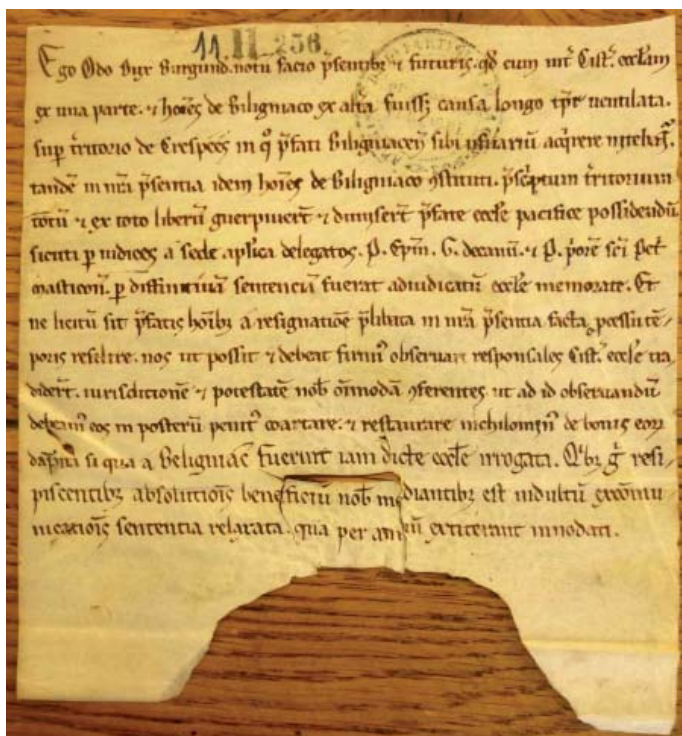 11 II 236
Ego Odo dux Burgund. notū facio p̄sentibꝫ ⁊ futuris. qđ cum int̾ Cist̾. eccl̄am
ex una parte. ⁊ hoīes de Biligniaco ex alta fuiss; causa longo tp̄r uentilata.
sup t̾ritorio de Crespees in q̊ p̄fati Biligniaceñ sibi usuariū acq̾rere
tandē in nrā p̄sentia idem hoīes de Biligniaco ꝯstituti. p̄sc̾ptum t̾ritorium
totū ⁊ ex toto liberū guerpiuer̄t ⁊ dimiser̄t p̄fate eccl̄e pacifice possidendū
sicuti ꝑ iudices a sede apl̄ica delegatos. P. Ep̄m. G. decanū. ⁊ P. p̾orē sc̄i Pet̾
masticoñ. ꝑ diffinitiuā sentenciā fuerat adiudicatū eccl̄e memorate. Et
ne licitū sit p̄fatis hoībꝫ a resignatiōe p̄libata in nrā p̄sentia facta ꝓcessu tē-
poris resilire. nos ut possit ⁊ debeat firmit̾ obseruari responsales Cist̾. eccl̄e tra
dider̄t. iurisdictionē ⁊ potestatē nob̄ om̄imodā ꝯferentes ut ad id obseruandū
debeam̾ eos in posterū penit̾ coartare. ⁊ restaurare nichilomin̾ de bonis eoꝝ
dāpna si qua a Beligniac̄ fuerint iam dicte eccl̄e irrogata. Q̾bꝫ g̾ resi-
piscentibꝫ absolutiōis beneficiū nob̄ mediantibꝫ est indultū excōmu
nicatiōis sententia relaxata. qua per annū extiterant innodati.